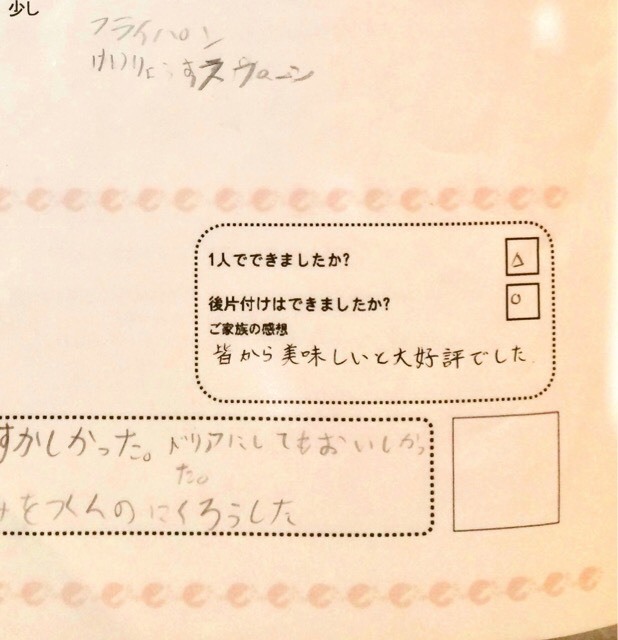 少し
フライパン
けいりょうスプーン
1人でできましたか?
△
後片付けはできましたか?
○
ご家族の感想
皆から美味しいと大好評でした。
ずかしかった。ドリアにしてもおいしかっ
た。
みをつくんのにくろうした